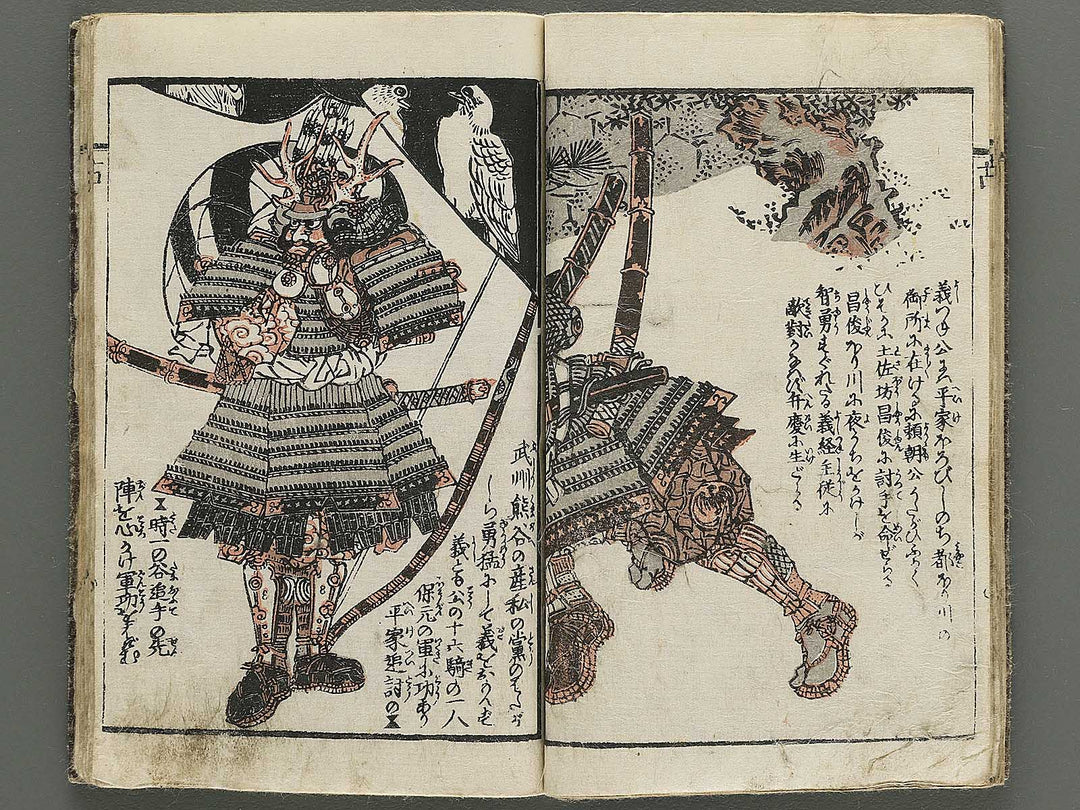 義つね公は平家ほろびしのち都ほり川の
御所に在けるに頼朝公うたがひふかく
ひそかに土佐坊昌俊に討手を命せらる
昌俊ほり川に夜うちをかけしが
智勇すぐれたる義経主従に
敵對かなはず弁慶に生どらる
武州熊谷の産私の黨の
しら勇猛にして義を
義ともの公の十六騎の一人
保元の軍に功あり
平家追討の
時一の谷追手の先
陣を心がけ軍功